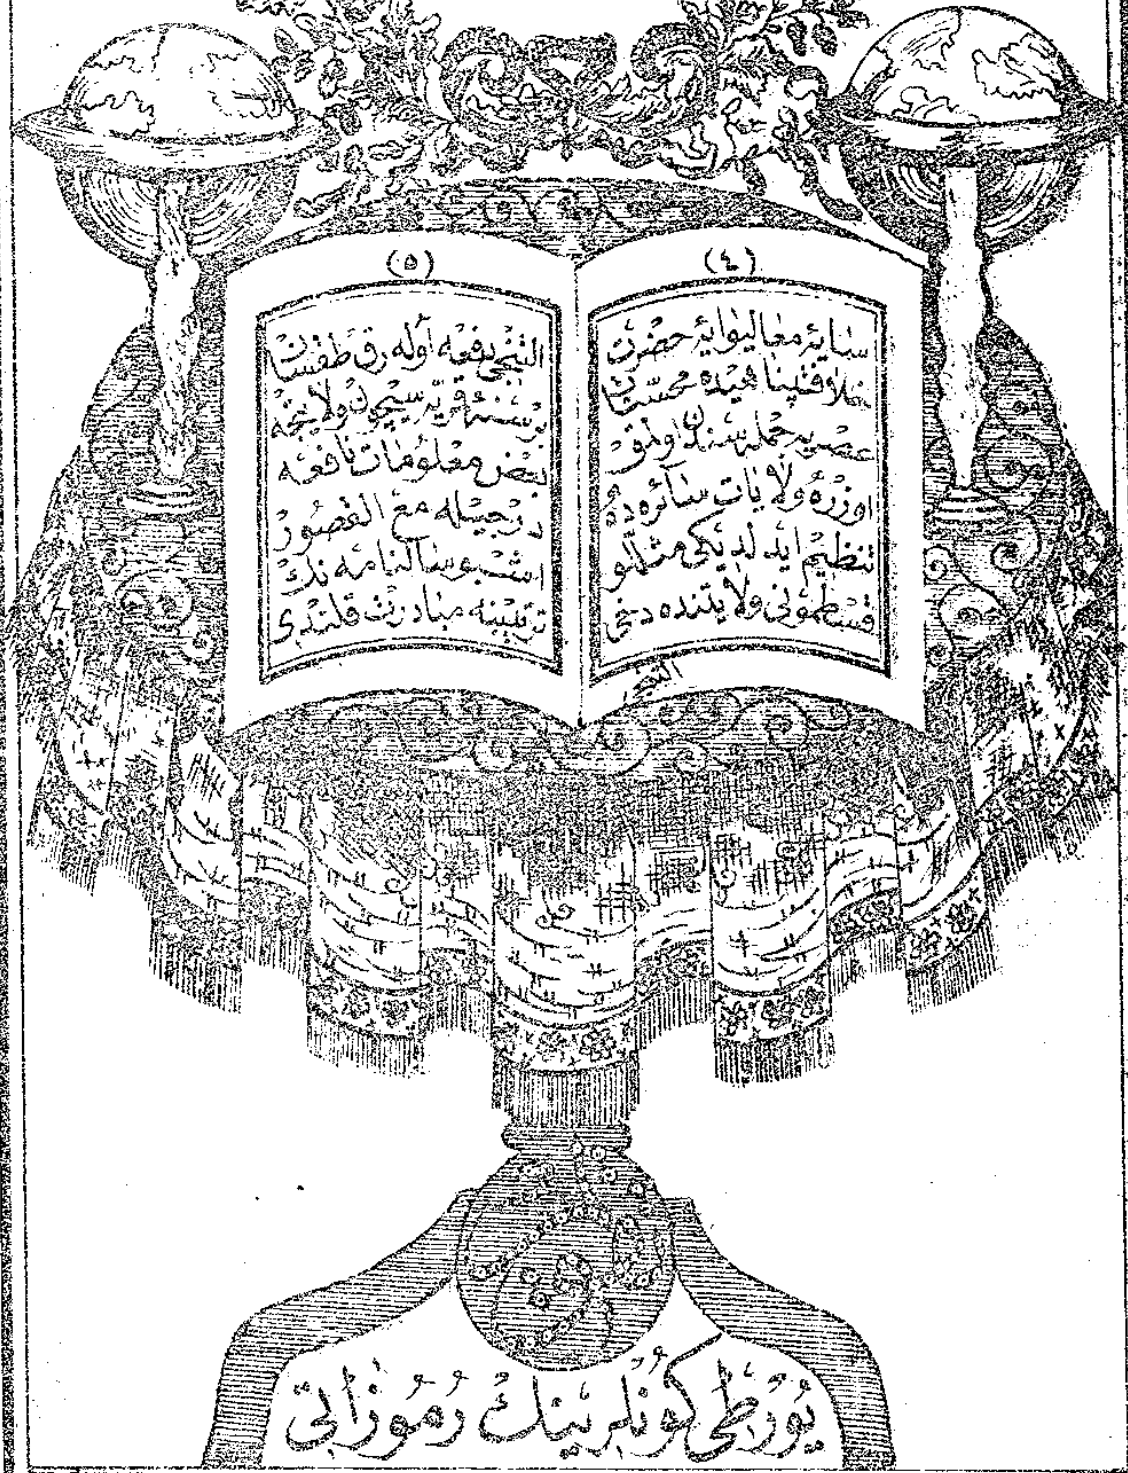 (٤)
سایهٔ معالیوایهٔ حضرت
خلافتپناهیده محسنات
عصریه جمله سندن اولمق
اوزره ولایات سائره ده
تنظیم ایدلدیکی مثللو
قسطمونی ولایتنده دخی
التنجی
(٥)
التنجی دفعه اوله رق طقسان
برسنهٔ قریه سیچون ولایتجه
بعض معلومات نافعه
درجیله مع القصور
اشبو سالنامه نك
ترتیبنه مبادرت قلندی
یورطی کونلرینك رموزاتی